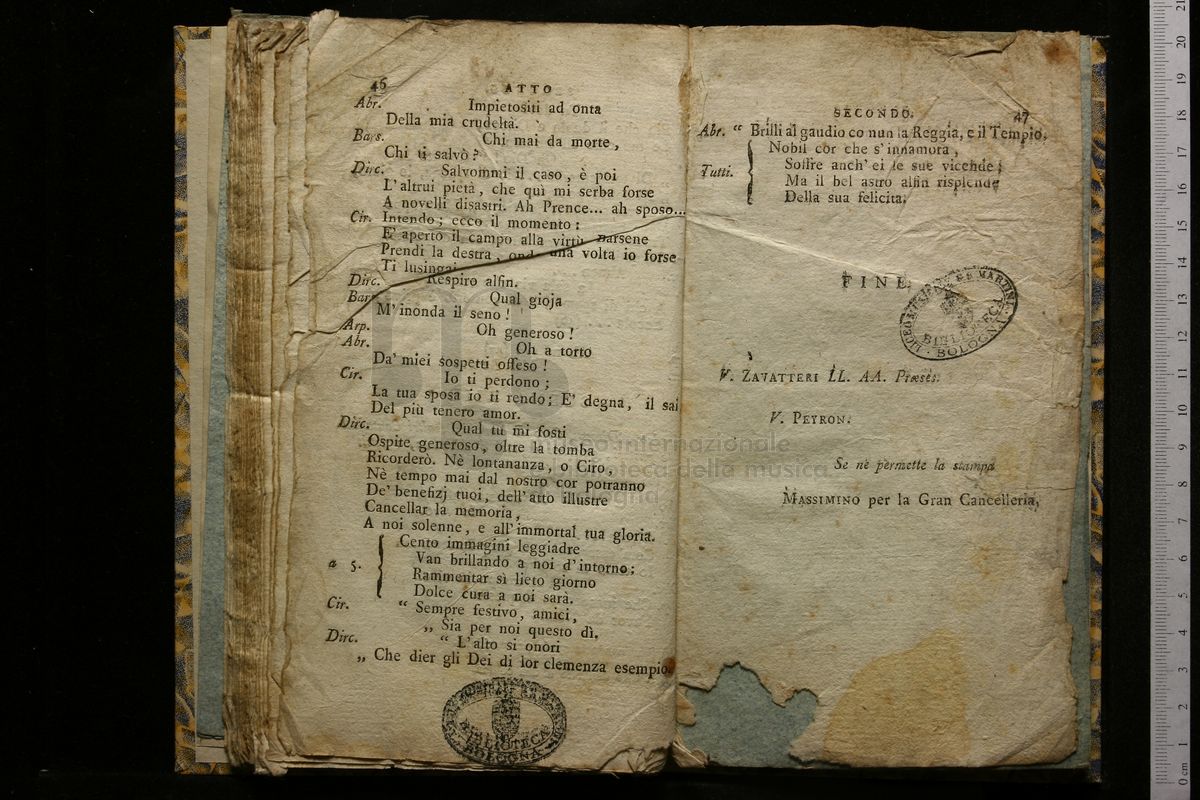 46
ATTO
Abr. Impietositi ad onta
Della mia crudeltà.
Bars. Chi mai da morte,
Chi ti salvò?
Dirc. Salvommi il caso, è poi
L'altrui pietà, che quì mi serba forse
A novelli disastri. Ah Prence... ah sposo...
Cir. Intendo; ecco il momento:
E' aperto il campo alla virtù Barsene
Prendi la destra, ond una volta io forse
Ti lusingai
Dirc. Respiro alfin.
Bars Qual gioja
M'inonda il seno!
Arp. Oh generoso!
Abr. Oh a torto
Da' miei sospetti offeso!
Cir. Io ti perdono;
La tua sposa io ti rendo; E' degna, il sai
Del più tenero amor.
Dirc. Qual tu mi fosti
Ospite generoso, oltre la tomba
Ricorderò. Nè lontananza, o Ciro,
Nè tempo mai dal nostro cor potranno
De' benefizj tuoi, dell'atto illustre
Cancellar la memoria,
A noi solenne, e all'immortal tua gloria.
Cento immagini leggiadre
a 5. Van brillando a noi d'intorno;
Rammentar sì lieto giorno
Dolce cura a noi sarà.
Cir. “ Sempre festivo, amici,
„ Sia per noi questo dì.
Dirc. “ L'alto si onori
„ Che dier gli Dei di lor clemenza esempio
BIBLIOTECA
BOLOGNA
SECONDO.
47
Abr. “ Brilli al gaudio co nun la Reggia, e il Tempio.
Nobil cor che s'innamora,
Tutti. Soffre anch'ei le sue vicende;
Ma il bel astro alfin risplende
Della sua felicita.
FINE.
LICEO MUSICALE G.B. MARTINI
BIBLIOTECA
BOLOGNA
V. ZAVATTERI LL. AA. Præses.
V. PEYRON.
Se nè permette la stampa
MASSIMINO per la Gran Cancelleria,
museo internazionale
biblioteca della musica
bologna
0 cm 1 2 3 4 5 6 7 8 9 10 11 12 13 14 15 16 17 18 19 20 21